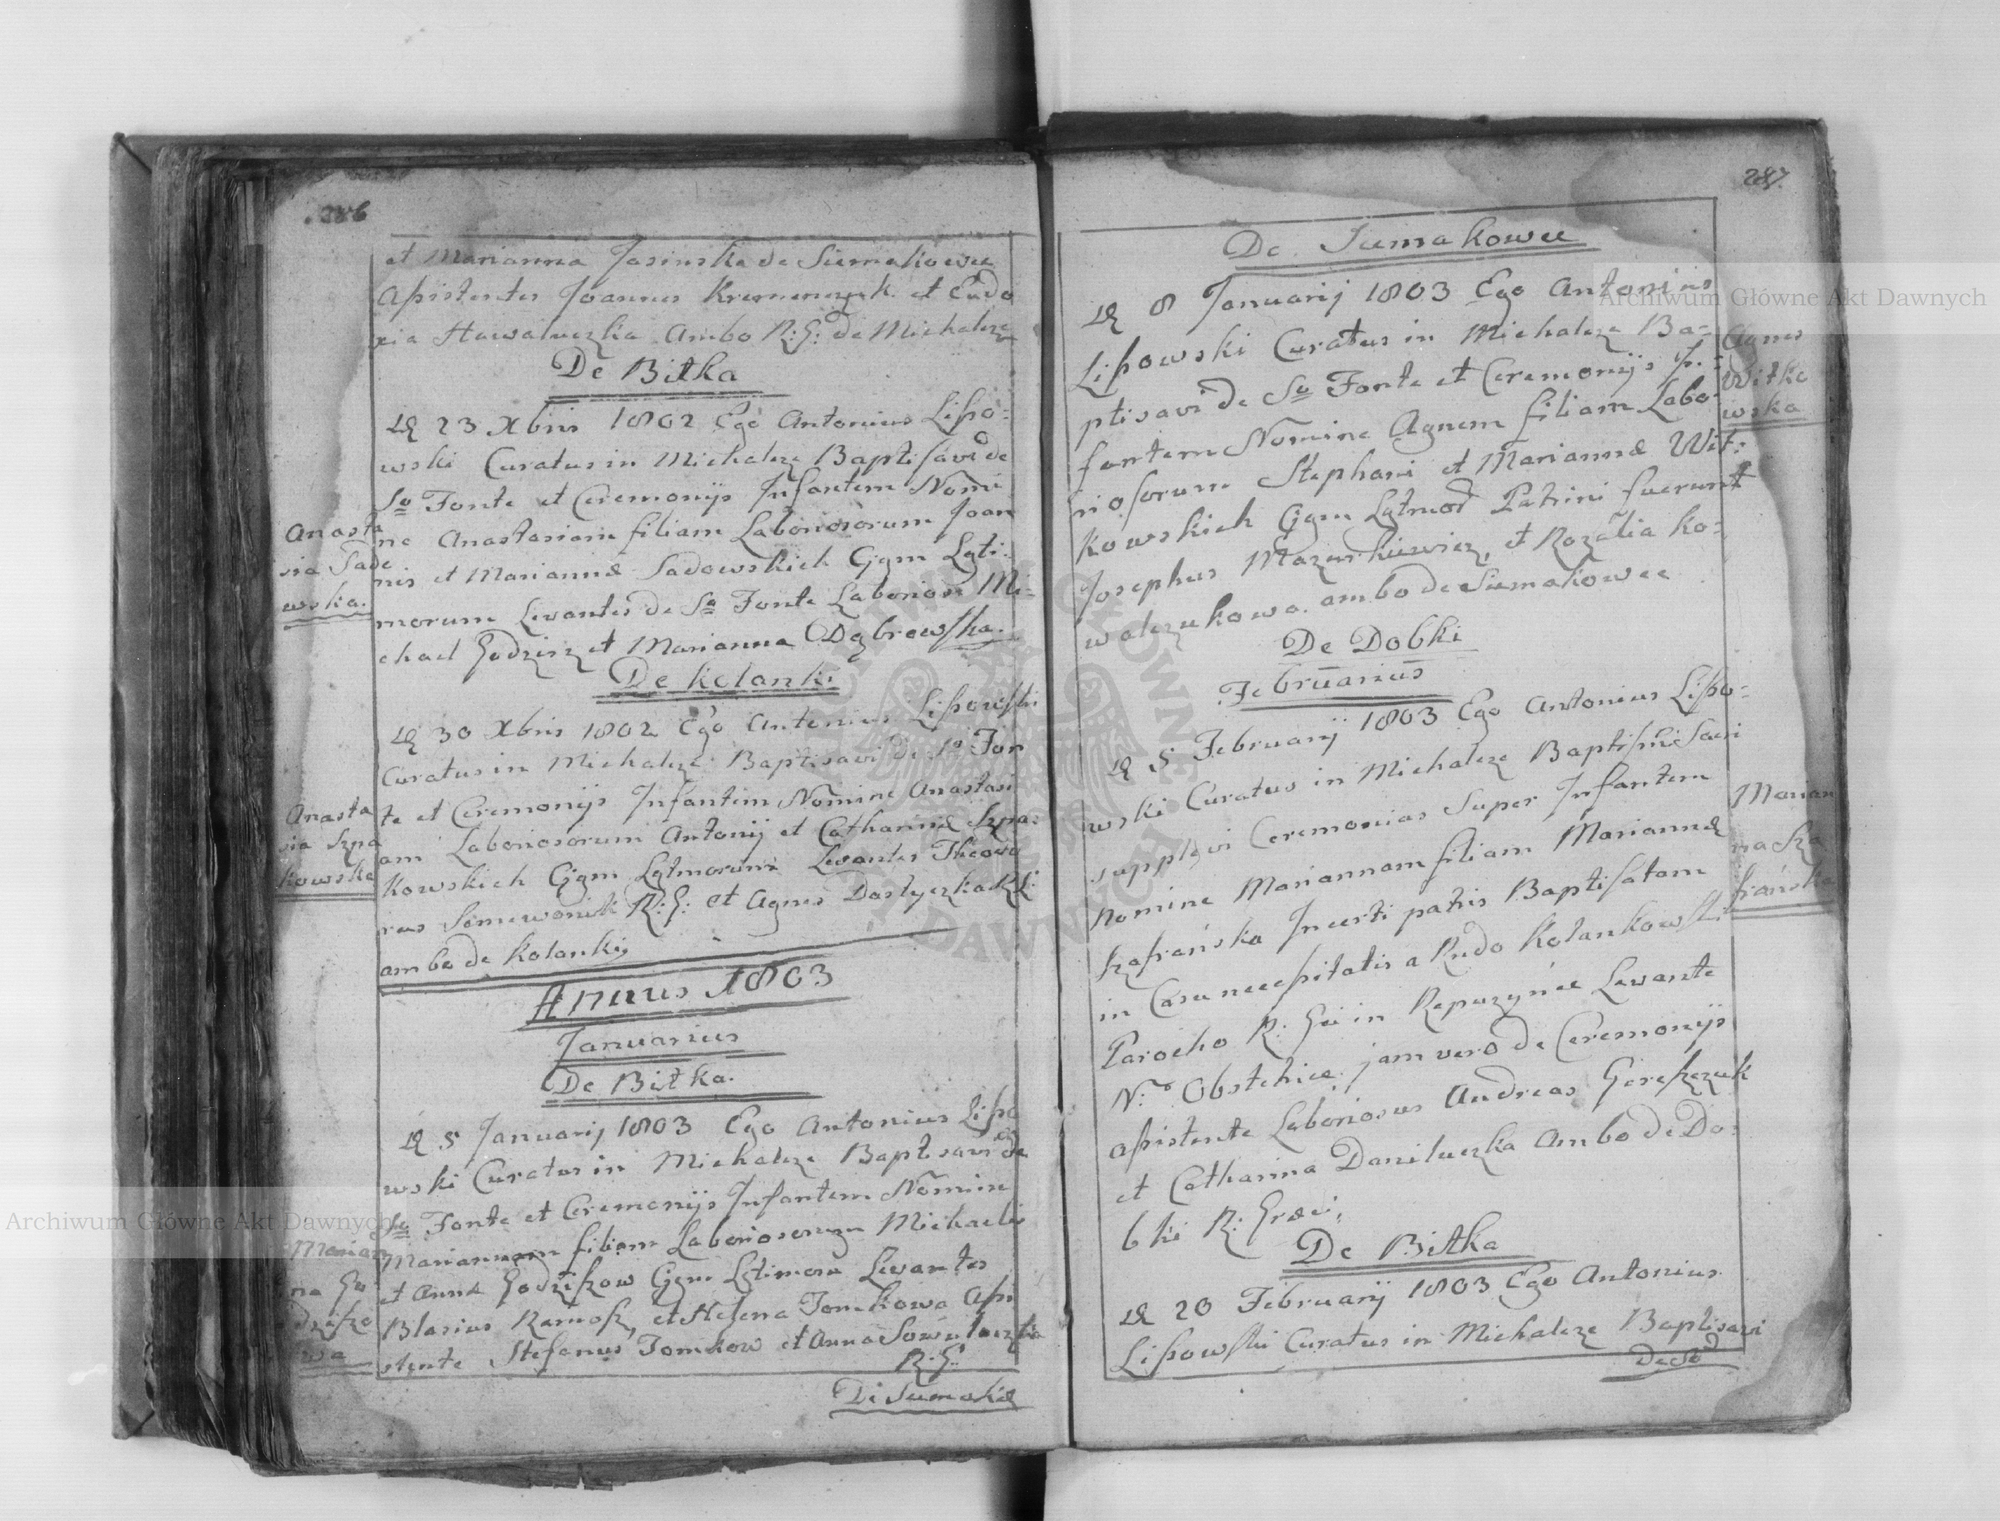 286
et Marianna Jasinska de Siemakowce
Assistentes Joannes Kremenczuk et Eudo
xia Hawaluczka Ambo R: G: de Michalcze
De Bitka
D 23 Xbris 1802 Ego Antonius Lipo=
wski Curatus in Michalcze Baptisavi de
So Fonte et Ceremonijs Infantem Nomi
ne Anastasiam filiam Laboriosorum Joan
nis et Mariannæ Sadowskich Cjgm Lgti-
morum Levantes de So Fonte Laboriosi Mi-
chael Godzisz et Marianna Dąbrowska.
Anasta
sia Sado
wska.
De Kolanki
D 30 Xbris 1802 Ego Antonius Lipowski
Curatus in Michalcze Baptisavi de So Fon
te et Ceremonijs Infantem Nomine Anastasi
am Laboriosorum Antonij et Catharinæ Szpa-
kowskich Cjgm Lgtmorum Levantes Theodo
rus Semewonik R: G: et Agnes Dastyczka R: L:
ambo de Kolanki
Anasta
sia Szpa
kowska
Annus 1803
Januarius
De Bitka.
D 5 Januarij 1803 Ego Antonius Lipo
wski Curatus in Michalcze Baptisavi de
So Fonte et Ceremonijs Infantem Nomine
Mariannam filiam Laboriosorum Michaelis
et Annæ Godziszow Cjgm Lgtimoru Levantes
Blasius Ramosz, et Helena Tomkowa Assi
stente Stefanus Tomkow et Anna
R: G:
Marian
na Go
dziszo
wa
De Siemakow
287
De Siemakowce
D 8 Januarij 1803 Ego Antonius
Lipowski Curatus in Michalcze Ba=
ptisavi de So Fonte et Ceremonijs In=
fantem Nomine Agnem filiam Labo-
riosorum Stephani et Mariannæ Wit:
kowskich Cjgm Lgtmor Patrini fuerunt
Josephus Mazurkiewicz, et Rozalia Ko:
walczukowa ambo de Siemakowce
Agnes
Witko
wska
De Dobki
Februarius
D 5 Februarij 1803 Ego Antonius Lipo=
wski Curatus in Michalcze Baptismi Sacri
supplevi Ceremonias Super Infantem
Nomine Mariannam filiam Mariannæ
Szafrańska Incerti patris Baptisatam
in Casu necessitatis a Rndo Kolankowski
Parocho R: Gri in Repuzynce Levante
N:o Obstetrice jam vero de Ceremonijs
assistente Laboriosus Andreas Gereszczuk
et Catharina Daniluczka Ambo de Do-
bki R: Græci,
Marian
na Sza
frańska
De Bitka
D 20 Februarij 1803 Ego Antonius
Lipowski Curatus in Michalcze Baptisavi
de So
Archiwum Główne Akt Dawnych
Archiwum Główne Akt Dawnych
ARCHIWUM GŁÓWNE AKT DAWNYCH